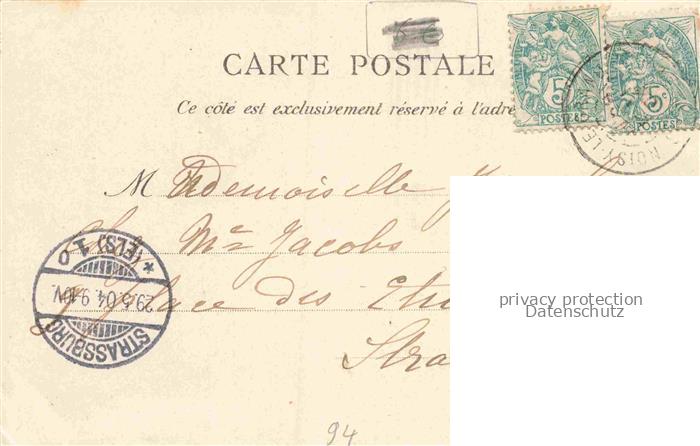 CARTE POSTALE
Ce côté est exclusivement réservé à l'adre
5c
POSTES
5c
POSTES
NOISY-LE-
Mademoiselle
Chez Mme Jacobs
Place des Etu
Stra
STRASSBURG
29.5.04. 9-10V.
* (ELS) 1 o
privacy protection
Datenschutz
94